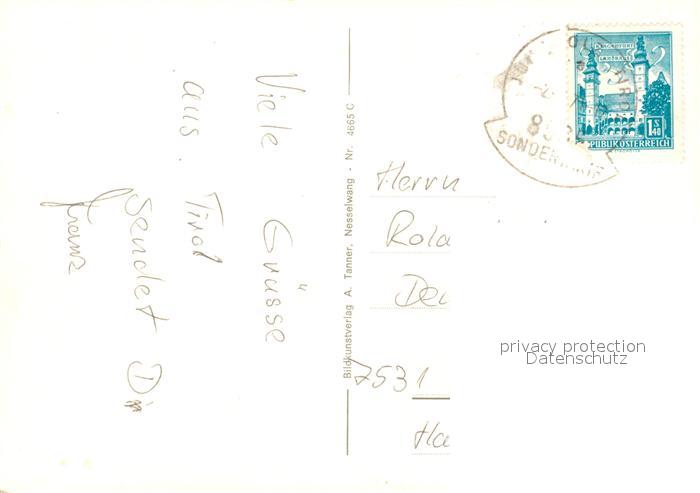 Viele Grüsse
aus Tirol
sendet Dir
Franz
Bildkunstverlag A. Tanner, Nesselwang - Nr. 4665 C
Herrn
Rola
Deu
7531
Ha
KLAGENFURT
LANDHAUS
1.40
S
REPUBLIK ÖSTERREICH
SONDERMARKE
privacy protection
Datenschutz